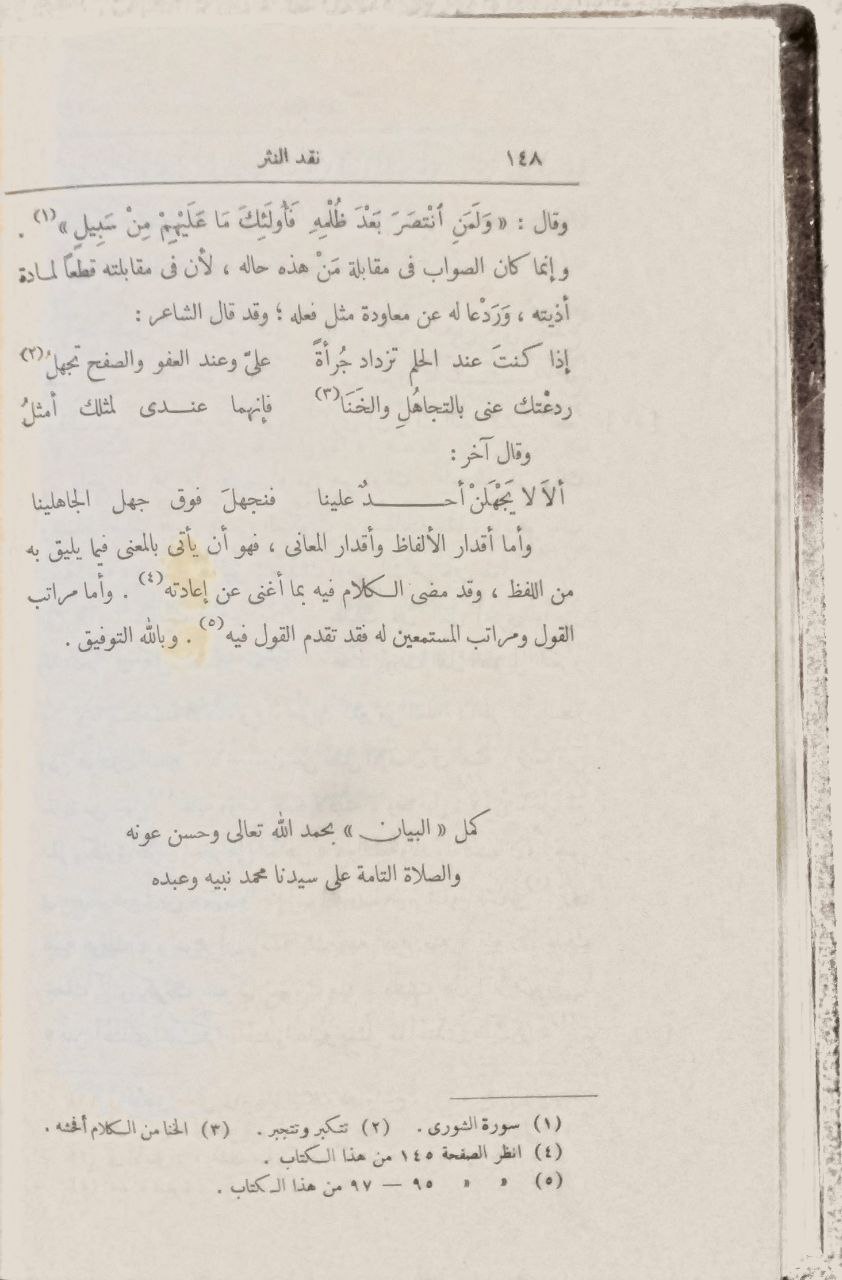 ١٤٨ نقد النثر
وقال : « وَلَمَنِ ٱنْتَصَرَ بَعْدَ ظُلْمِهِ فَأُولَئِكَ مَا عَلَيْهِمْ مِنْ سَبِيلٍ »(١) .
وإنما كان الصواب فى مقابلة مَنْ هذه حاله ، لأن فى مقابلته قطعاً لمادة
أذيته ، وَرَدْعا له عن معاودة مثل فعله ؛ وقد قال الشاعر :
إذا كنتَ عند الحلم تزداد جُرأةً علىّ وعند العفو والصفح تجهلُ(٢)
ردعْتك عنى بالتجاهُلِ والخَنَا(٣) فإنهما عنــدى لمثلك أمثلُ
وقال آخر :
ألاَ لا يَجْهَلَنْ أحــــــدٌ علينا فنجهلَ فوق جهل الجاهلينا
وأما أقدار الألفاظ وأقدار المعانى ، فهو أن يأتى بالمعنى فيما يليق به
من اللفظ ، وقد مضى الــكلام فيه بما أغنى عن إعادته(٤) . وأما مراتب
القول ومراتب المستمعين له فقد تقدم القول فيه(٥) . وبالله التوفيق .
كمل « البيان » بحمد الله تعالى وحسن عونه
والصلاة التامة على سيدنا محمد نبيه وعبده
(١) سورة الشورى . (٢) تتكبر وتتجبر . (٣) الخنا من الــكلام أفحشه .
(٤) انظر الصفحة ١٤٥ من هذا الــكتاب .
(٥) » » ٩٥ — ٩٧ من هذا الــكتاب .